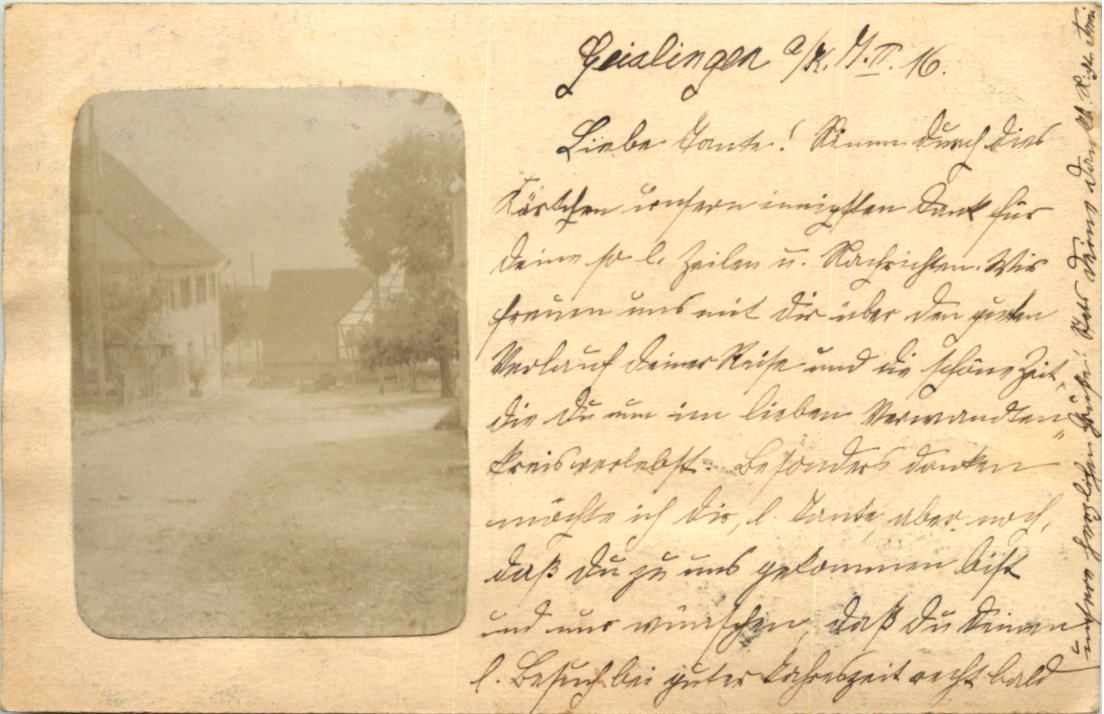 Geislingen a/K. 7.II.16.
Liebe Tante! durch dies
Kärtchen unsern innigsten Dank für
Deine so l. Zeilen u. Nachrichten. Wir
freuen uns mit Dir über den guten
Verlauf Deiner Reise und die schöne Zeit,
die Du nun im lieben Verwandten
kreis verlebst. Besonders danken
möchte ich Dir, l. Tante, aber noch,
daß Du zu uns gekommen bist
und nur wünschen, daß Du Deinen
l. Besuch bei guter Jahreszeit recht bald
unsere herzlichen Grüße! Deine dankb.